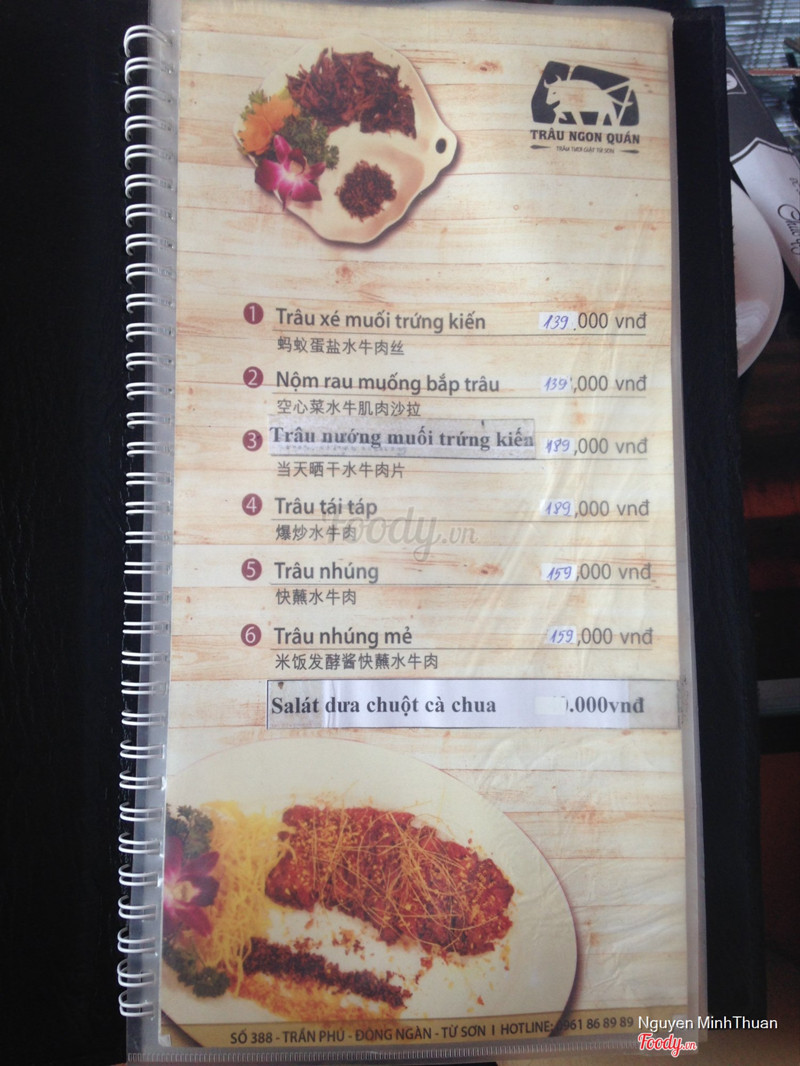 TRÂU NGON QUÁN
TRÂU TƯƠI GIẬT TỪ SƠN
1 Trâu xé muối trứng kiến 139.000 vnđ
蚂蚁蛋盐水牛肉丝
2 Nộm rau muống bắp trâu 139,000 vnđ
空心菜水牛肌肉沙拉
3 Trâu nướng muối trứng kiến 189,000 vnđ
当天晒干水牛肉片
4 Trâu tái táp 189,000 vnđ
爆炒水牛肉
Foody.vn
5 Trâu nhúng 159,000 vnđ
快蘸水牛肉
6 Trâu nhúng mẻ 159,000 vnđ
米饭发酵酱快蘸水牛肉
Salát dưa chuột cà chua 0.000vnđ
SỐ 388 - TRẦN PHÚ - ĐÔNG NGÀN - TỪ SƠN I HOTLINE: 961 86 89 89
Nguyen MinhThuan
Foody.vn